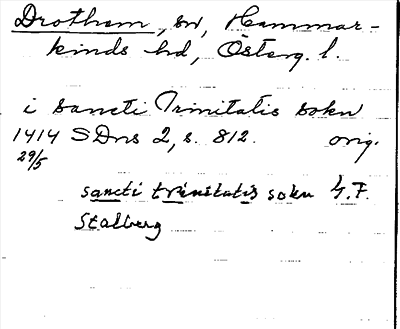 Drothem, sn, Hammar-
kinds hd, Österg. l.
i sancti Trinitatis sokn
1414 SDns 2, s. 812. orig.
29/5
sancti trinitatis sokn G.F.
Stalberg